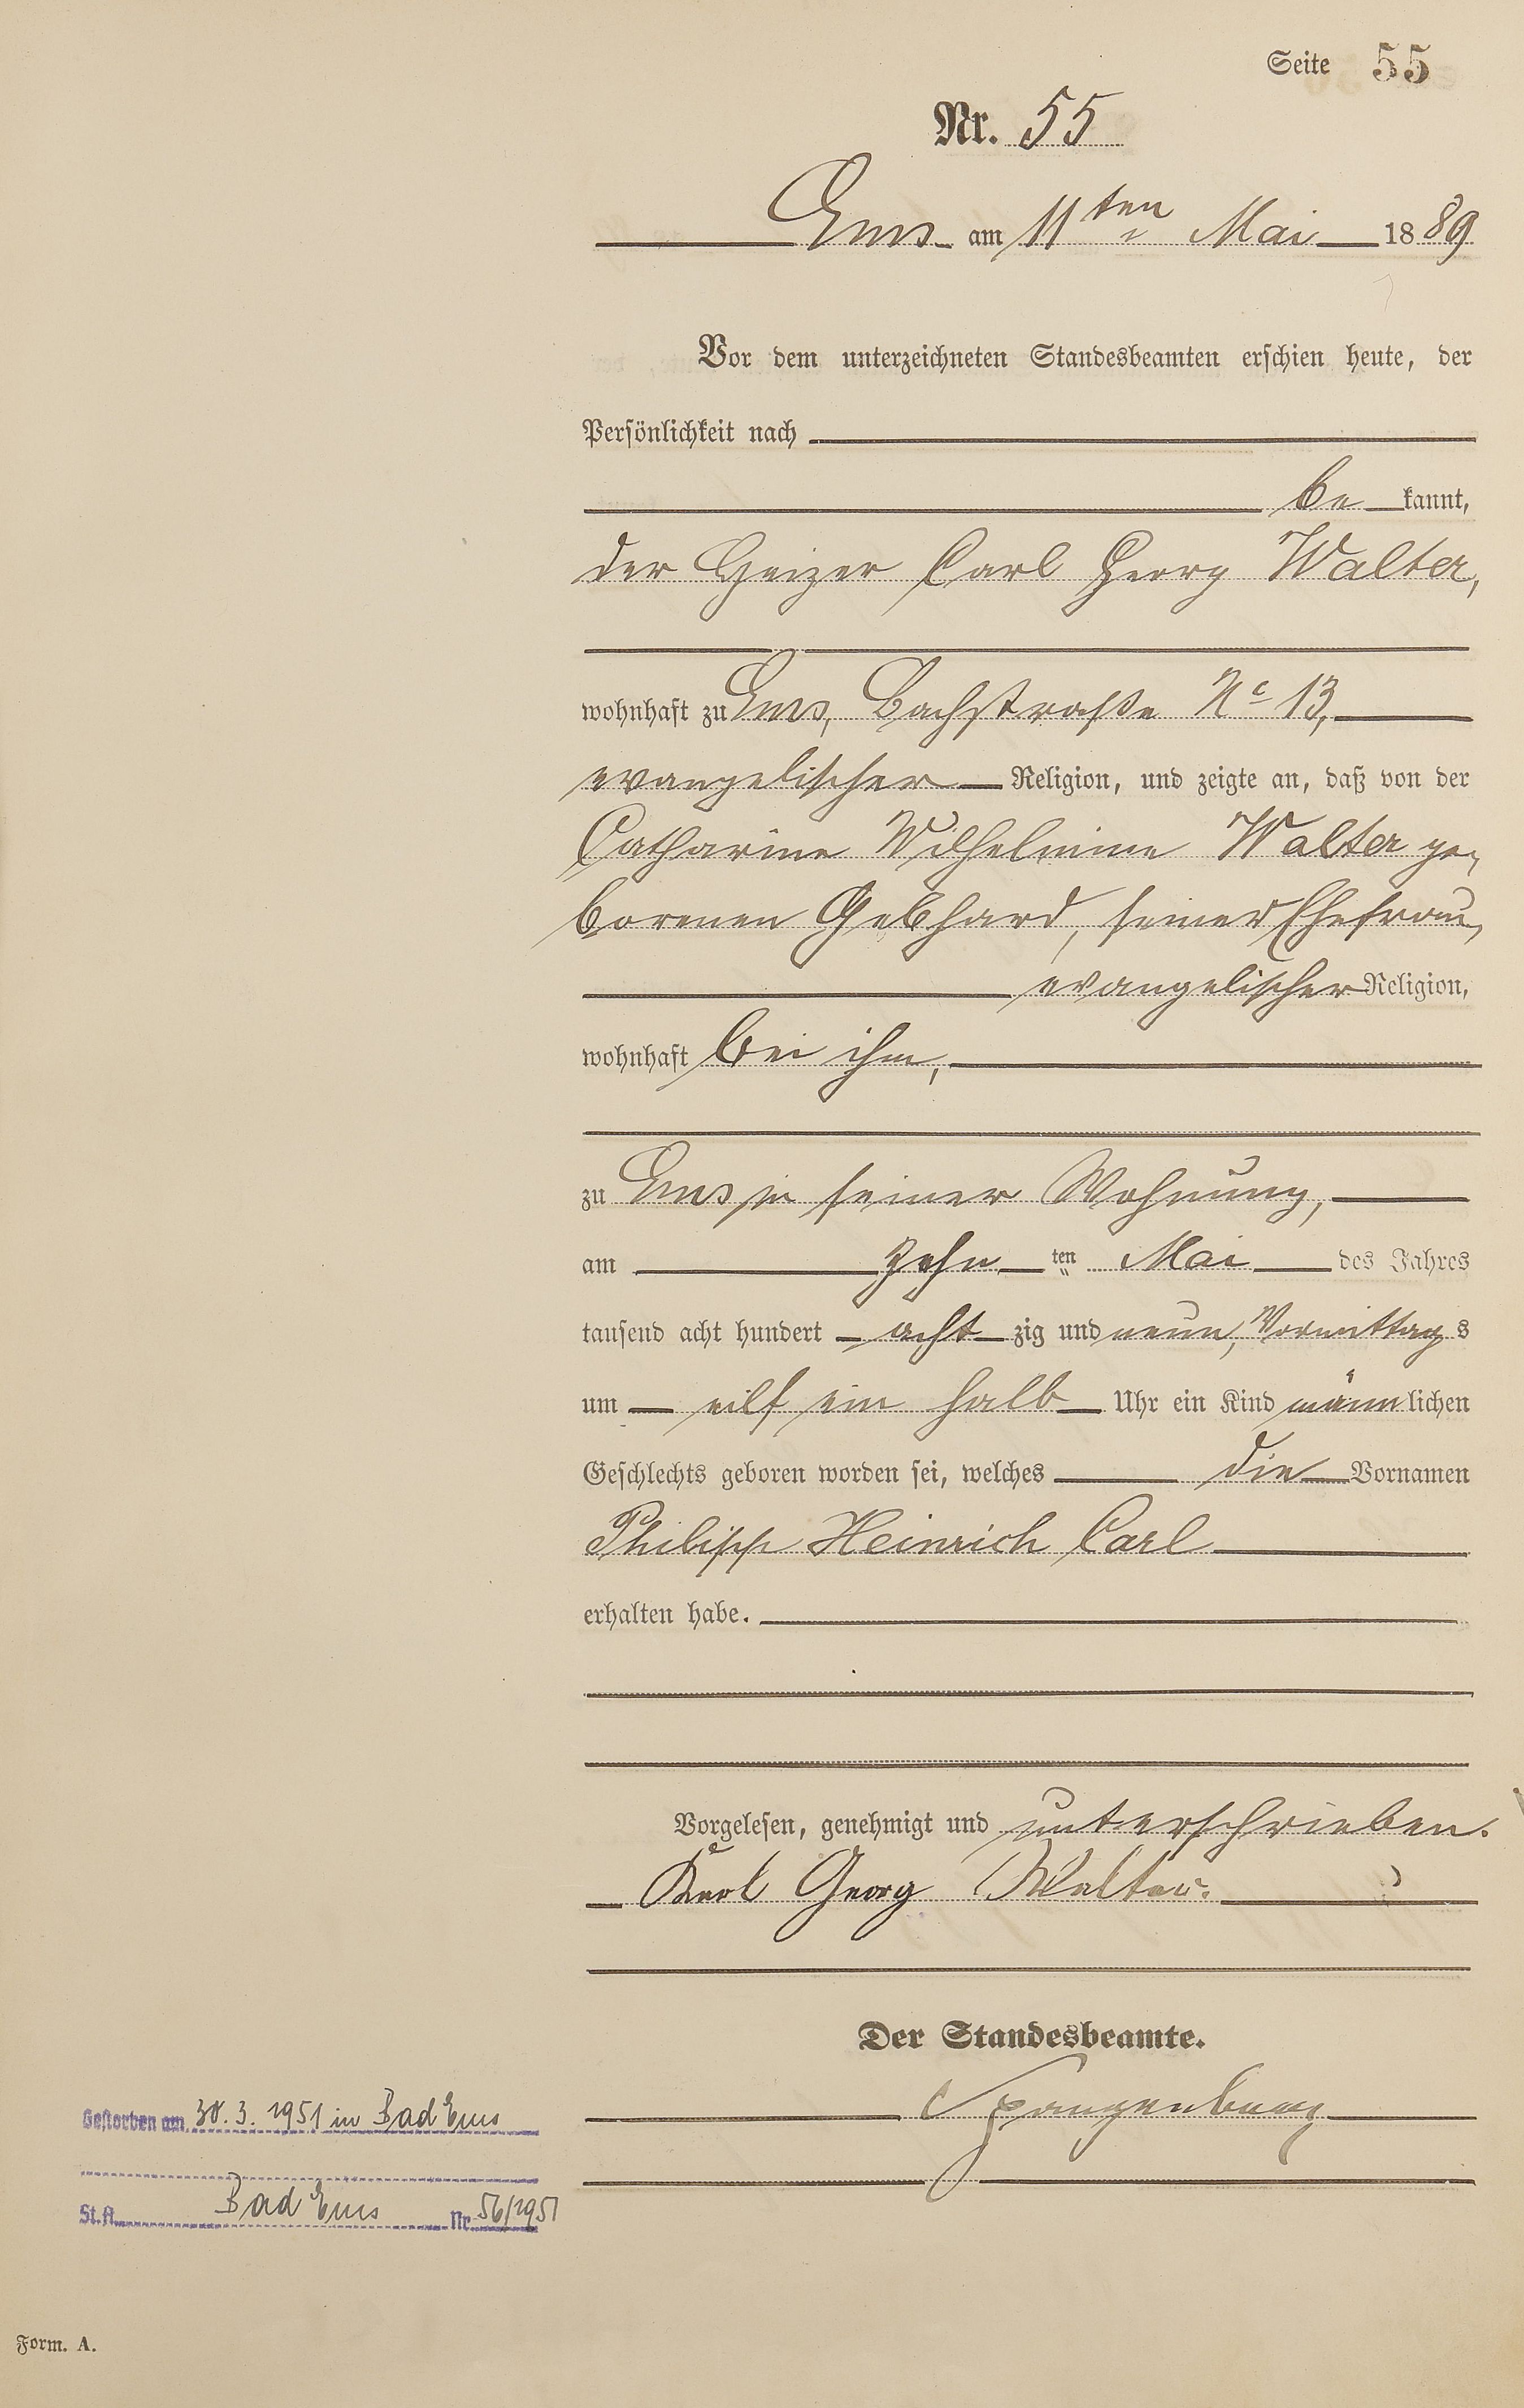 Seite 55
Nr. 55
Ems am 11ten Mai 1889
Vor dem unterzeichneten Standesbeamten erschien heute, der
Persönlichkeit nach
be kannt,
der Heizer Carl Georg Walter,
wohnhaft zu Ems, Bachstraße No 13,
evangelischer Religion, und zeigte an, daß von der
Catharine Wilhelmine Walter ge-
borenen Gebhard, seiner Ehefrau,
evangelischer Religion,
wohnhaft bei ihm,
zu Ems in seiner Wohnung,
am zehn ten Mai des Jahres
tausend acht hundert acht zig und neun, Vormittag s
um eilf ein halb Uhr ein Kind männ lichen
Geschlechts geboren worden sei, welches die Vornamen
Philipp Heinrich Carl
erhalten habe.
Vorgelesen, genehmigt und unterschrieben.
Karl Georg Walter.
Der Standesbeamte.
Spangenberg
Gestorben am 30.3.1951 in Bad Ems
St.A. Bad Ems Nr. 56/1951
Form. A.